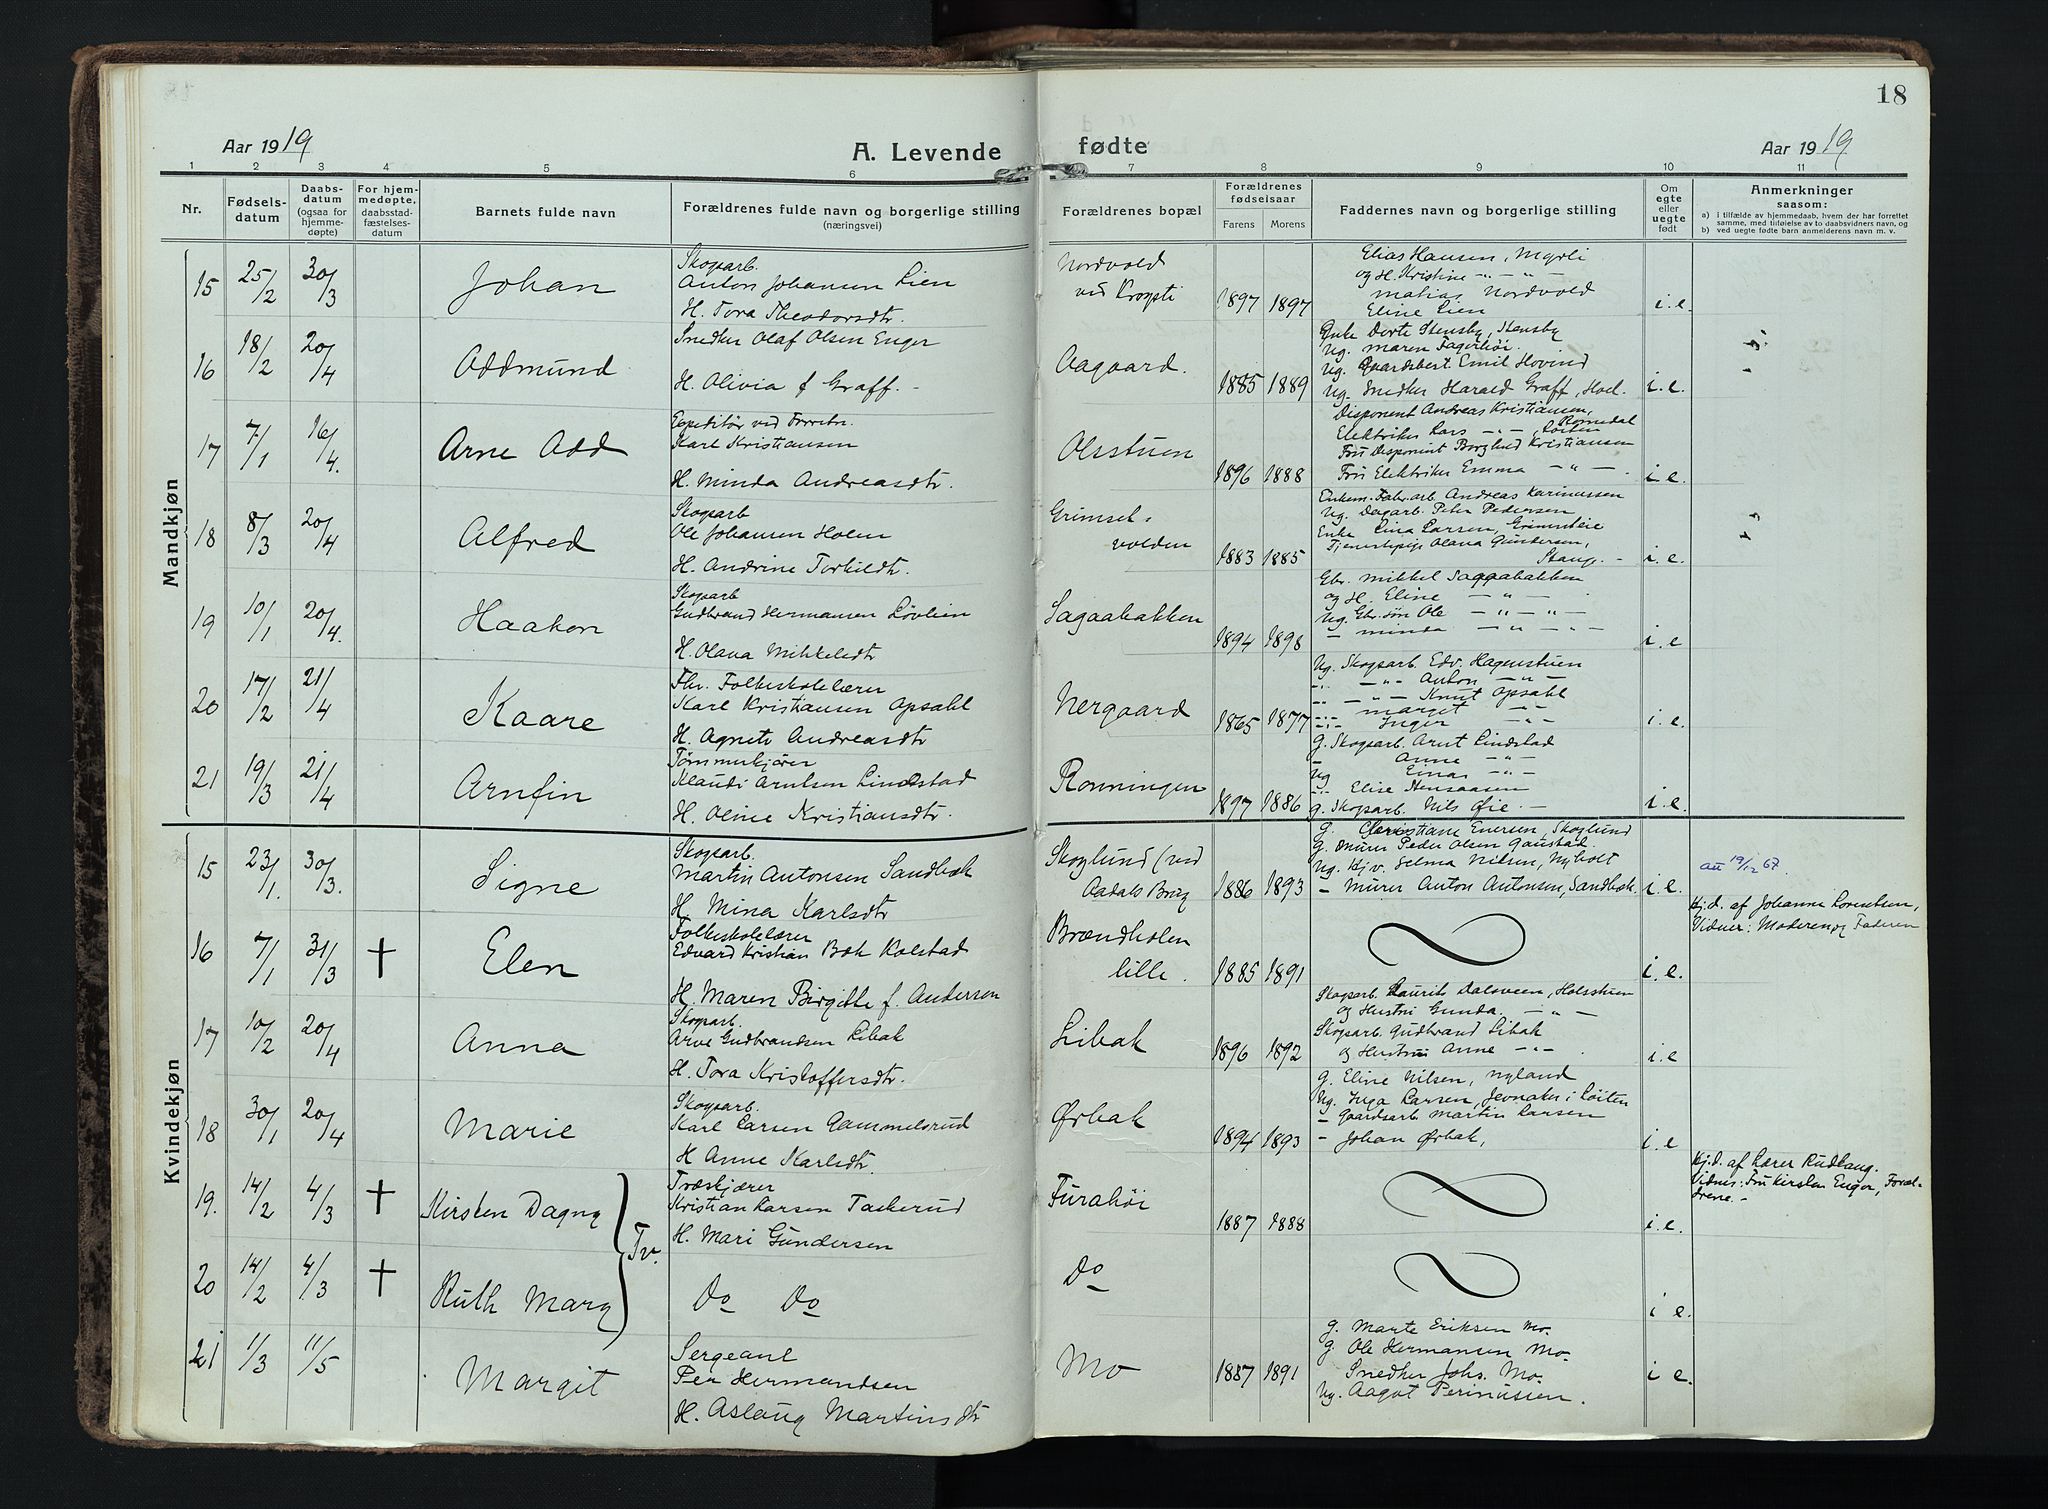 18
Aar 1919
A. Levende fødte
Aar 1919
1 2 3 4 5 6 7 8 9 10 11
Nr.
Fødselsdatum
Daabsdatum (ogsaa for hjemmedøpte)
For hjemmedøpte, daabsstadfæstelsesdatum
Barnets fulde navn
Forældrenes fulde navn og borgerlige stilling (næringsvei)
Forældrenes bopæl
Forældrenes fødselsaar
Farens Morens
Faddernes navn og borgerlige stilling
Om egte eller uegte født
Anmerkninger saasom:
a) i tilfælde av hjemmedaab, hvem der har forrettet samme, med tilføielse av to daabsvidners navn, og
b) ved uegte fødte barn anmelderens navn m. v.
Mandkjøn
15 25/2 30/3 Johan
Skogsarb.
Anton Johansen Lien
H. Tora Theodorsdtr.
Nordvold
ved Krogsti
1897 1897
Elias Hansen, Myrli
og H. Kristine -"- -"-
Matias Nordvold
Eline Lien
i.e.
16 18/2 20/4 Oddmund
Snedker Olaf Olsen Enger
H. Olivia f Graff. -
Aagaard.
1885 1889
Enke Dorte Stensby, Stensby
Ug. Maren Fagerhøi.
Ug. Gaardsbest. Emil Hovind
Ug. Snedker Harald Graff, Hoel.
i.e.
17 7/1 16/4. Arne Odd
Expeditør ved Forretn.
Karl Kristiansen
H. Minda Andreasdtr.
Olsstuen
1896 1888
Disponent Andreas Kristiansen, Romedal
Elektriker Lars -"- , Løiten
Fru Disponent Borghild Kristiansen
Fru Elektriker Emma -"-.
i.e.
18 8/3 20/4 Alfred
Skogsarb
Ole Johansen Holen
H. Andrine Torkildtr.
Grimset-
volden
1883 1885
Enkem. Fabr.arb. Andreas Karinussen
Ug. Dagarb. Peter Pedersen
Enke Lina Larsen, Grimseteie
Tjenestepige Olava Gundersen,
Stange. -
i.e.
19 10/1 20/4. Haakon
Skogsarb
Gudbrand Hermansen Løvlien
H. Olava Mikkelsdtr
Sagaabakken
1894 1898
Gbr. Mikkel Saggabakken
og H. Eline -"-
Ug. Gbr.søn Ole -"-"-
- Minda -"-"-
i.e
20 17/2 21/4 Kaare
Fhv. Folkeskolelærer
Karl Kristiansen Opsahl
H. Agnete Andreasdtr
Nergaard
1865 1877
Ug. Skogsarb. Edv. Hagenstuen
-"- -"- Anton -"-
-"- -"- Knut Opsahl
-"- Marget -"-
-"- Inger -"-
i.e.
21 19/3 21/4 Arnfin
Tømmerkjører
Klaudi Arntsen Lindstad
H. Oline Kristiansdtr.
Rønningen
1897 1886
G. Skogsarb. Arnt Lindstad
- Anne -"-
Ug Einar -"-
-"- Elise Stensaasen
G. Skogsarb. Nils Øie. -
i.e.
Kvindekjøn
15 23/1. 30/3. Signe
Skogsarb.
Martin Antonsen Sandbæk
H. Mina Karlsdtr
Skoglund (ved
Aadals Brug
1886 1893
G. Christiane Enersen, Skoglund
G. Murer Peder Olsen Gaustad.
Ug. Hjv. Selma Nilsen, Nyholt
- Murer Anton Antonsen, Sandbæk.
i.e.
att 19/12 67.
16 7/1 31/3 † Elen
Folkeskolelærer
Edvard Kristian Bæk Kolstad
H. Maren Birgitte f. Andersen
Brændholen
lille.
1885 1891
i.e.
Hj.d. af Johanne Lorentsen,
Vidner: Moderen og Faderen
17 10/2 20/4 Anna
Skogsarb.
Arve Gudbrandsen Libak
H. Tora Kristoffersdtr.
Libak
1896 1892
Skogsarb. Laurits Dalsveen, Holsstuen
og Hustru Gunda -"-
Skogsarb. Gudbrand Libak
og Hustru Anne -"-
i.e
18 30/1 20/4 Marie
Skogsarb.
Karl Larsen Gammelsrud
H Anne Karlsdtr.
Ørbak
1894 1893
G. Eline Nilsen, Nyland
Ug. Inga Larsen, Jevnaker i Løiten
- Gaardsarb. Martin Larsen
- Johan Ørbak,
i.e
19. 14/2 4/3 † Kirsten Dagny
Tv.
Træskjærer
Kristian Larsen Taskerud
H. Mari Gundersen
Furahøi
1887 1888
i.e.
Hj.d. af Lærer Rudhaug.
Vidnis: Fru Kirsten Enger, Foræl-
drene. -
20 14/2 4/3 † Ruth Mary
Do Do
Do
i e.
21 1/3 11/5 Margit
Sergeant
Per Hermandsen
H. Aslaug Martinsdtr
Mo
1887 1891
G. Marte Eriksen Mo.
G. Ole Hermansen Mo.
Snedker Johs. Mo.
Ug. Aagot Perinussen.
i e.